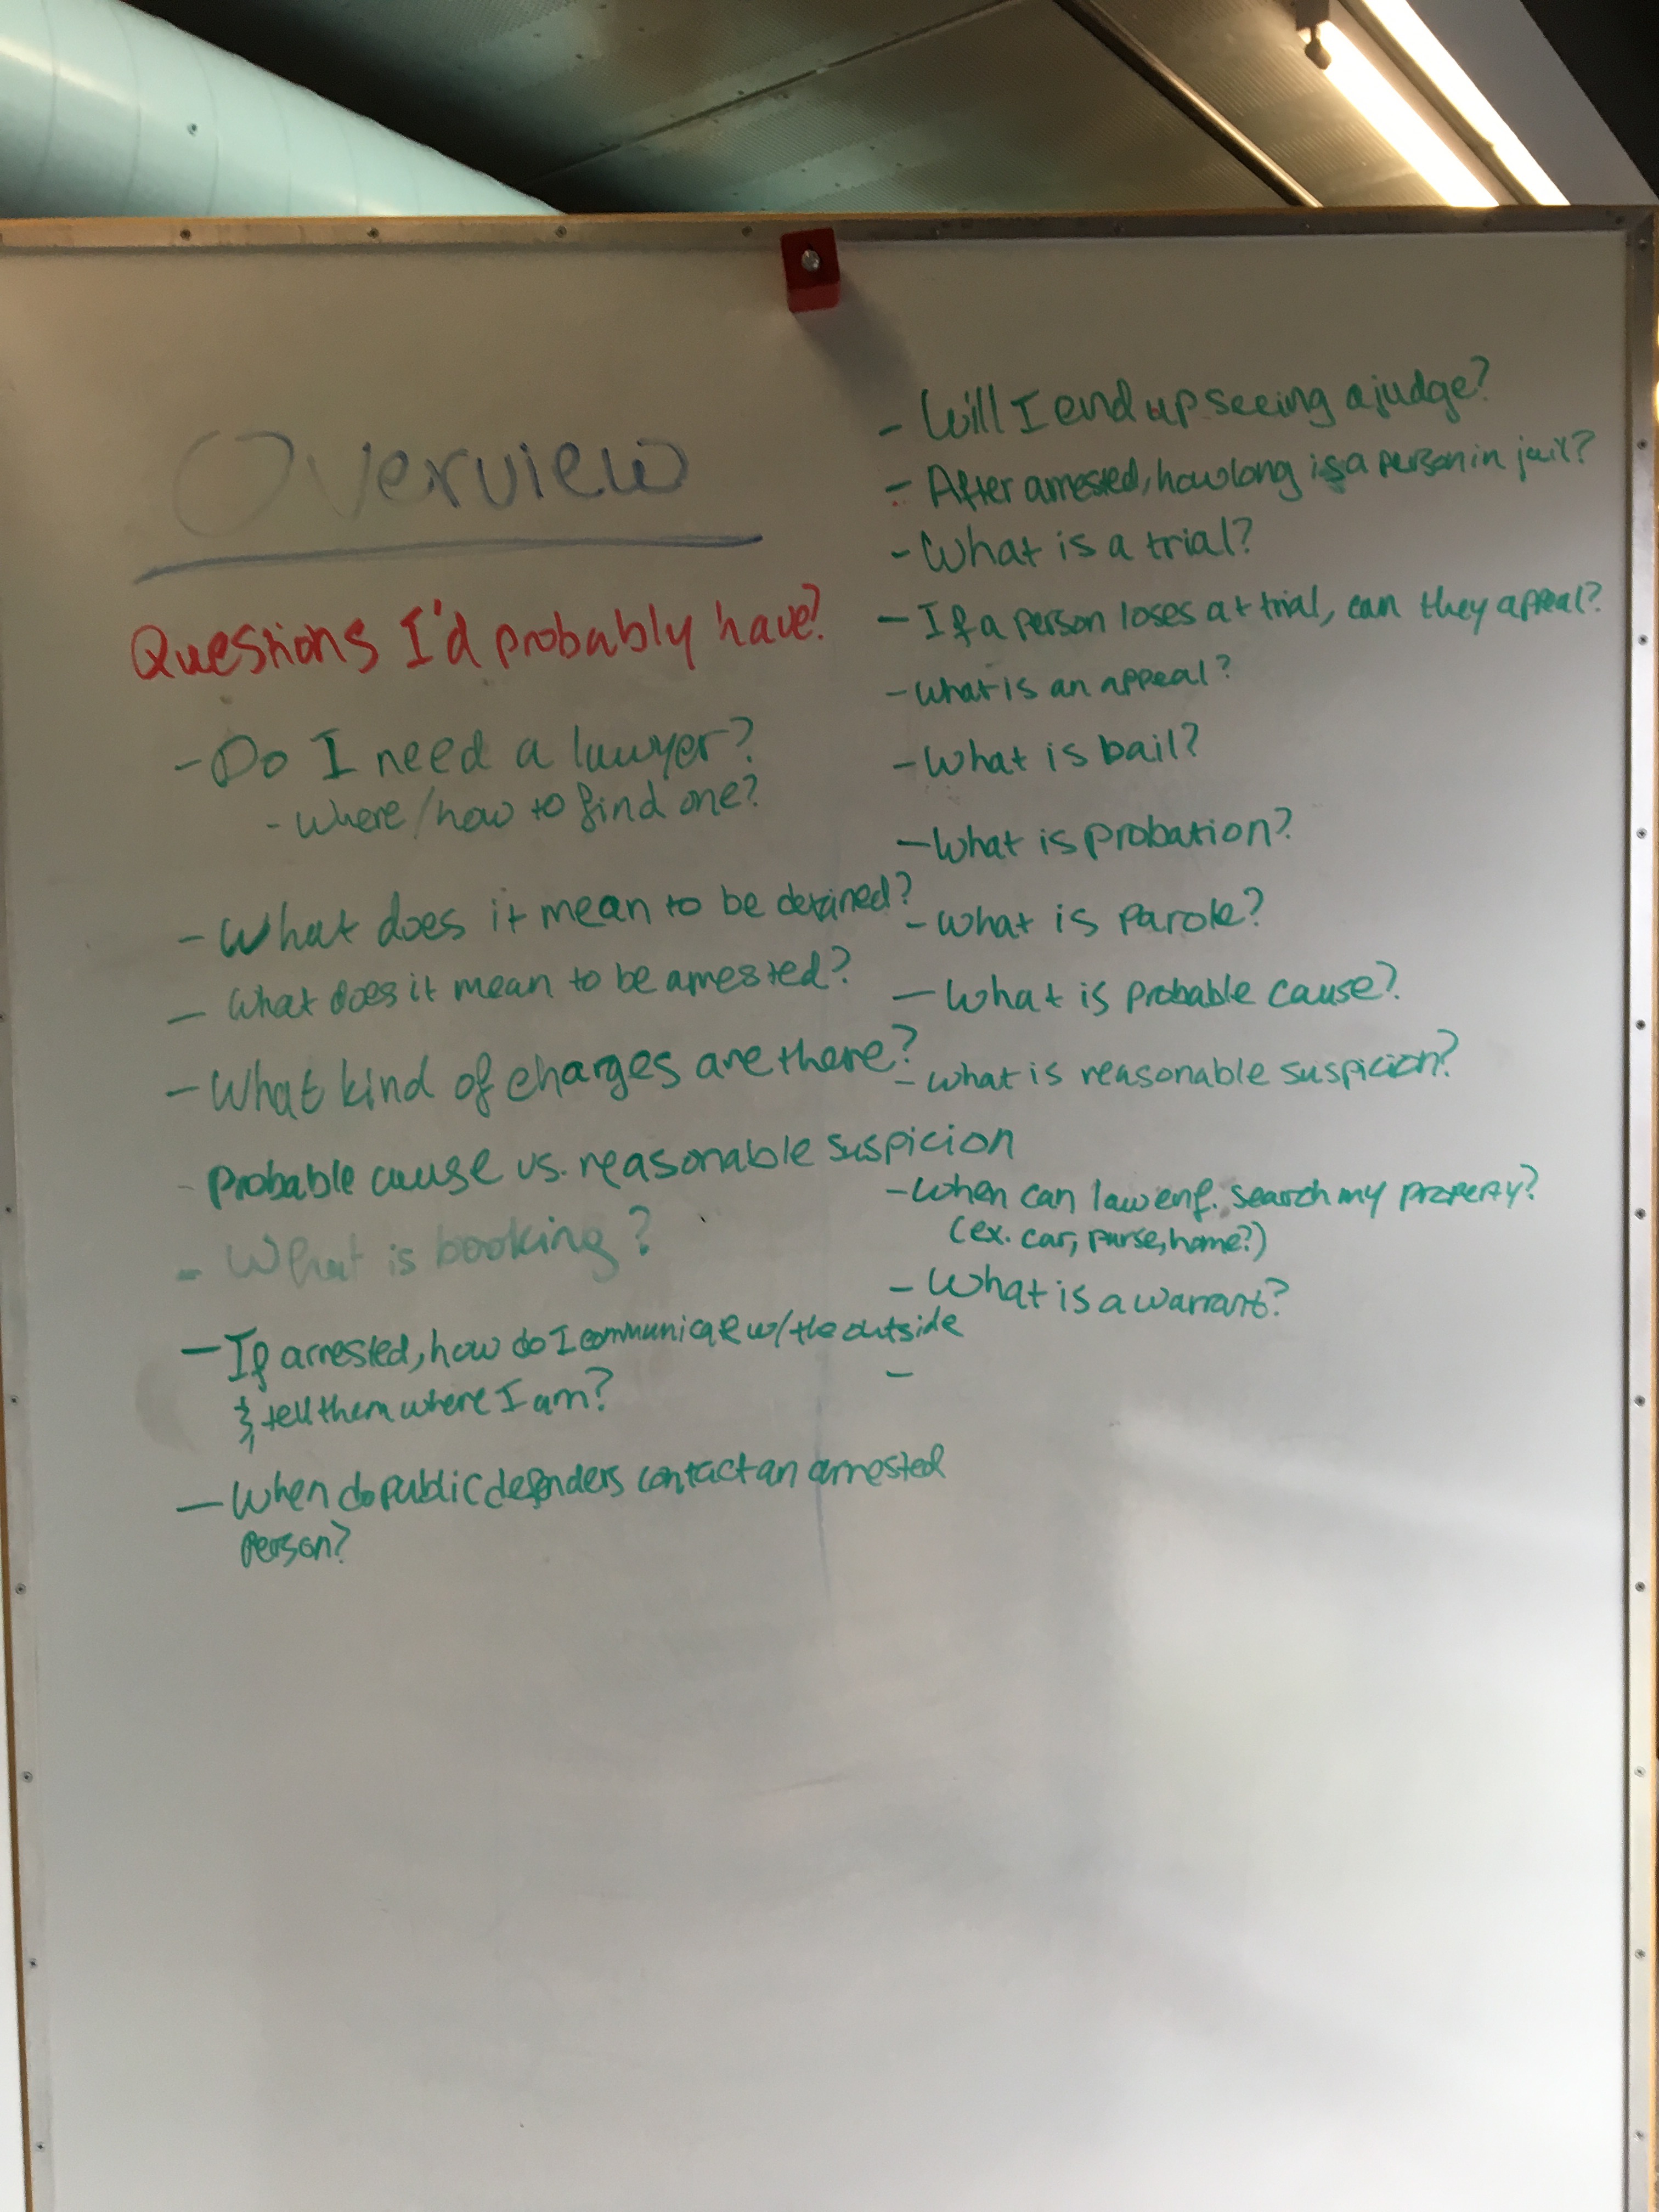 Overview
Questions I'd probably have?
- Do I need a lawyer?
- Where/how to find one?
- What does it mean to be detained?
- What does it mean to be arrested?
- What kind of charges are there?
- Probable cause vs. reasonable suspicion
- What is booking?
- If arrested, how do I communicate w/the outside
& tell them where I am?
- When do public defenders contact an arrested
person?
- Will I end up seeing a judge?
- After arrested, how long is a person in jail?
- What is a trial?
- If a person loses at trial, can they appeal?
- What is an appeal?
- What is bail?
- What is probation?
- What is parole?
- What is probable cause?
- What is reasonable suspicion?
- When can law enf. search my property?
(ex. car, purse, home?)
- What is a warrant?
-